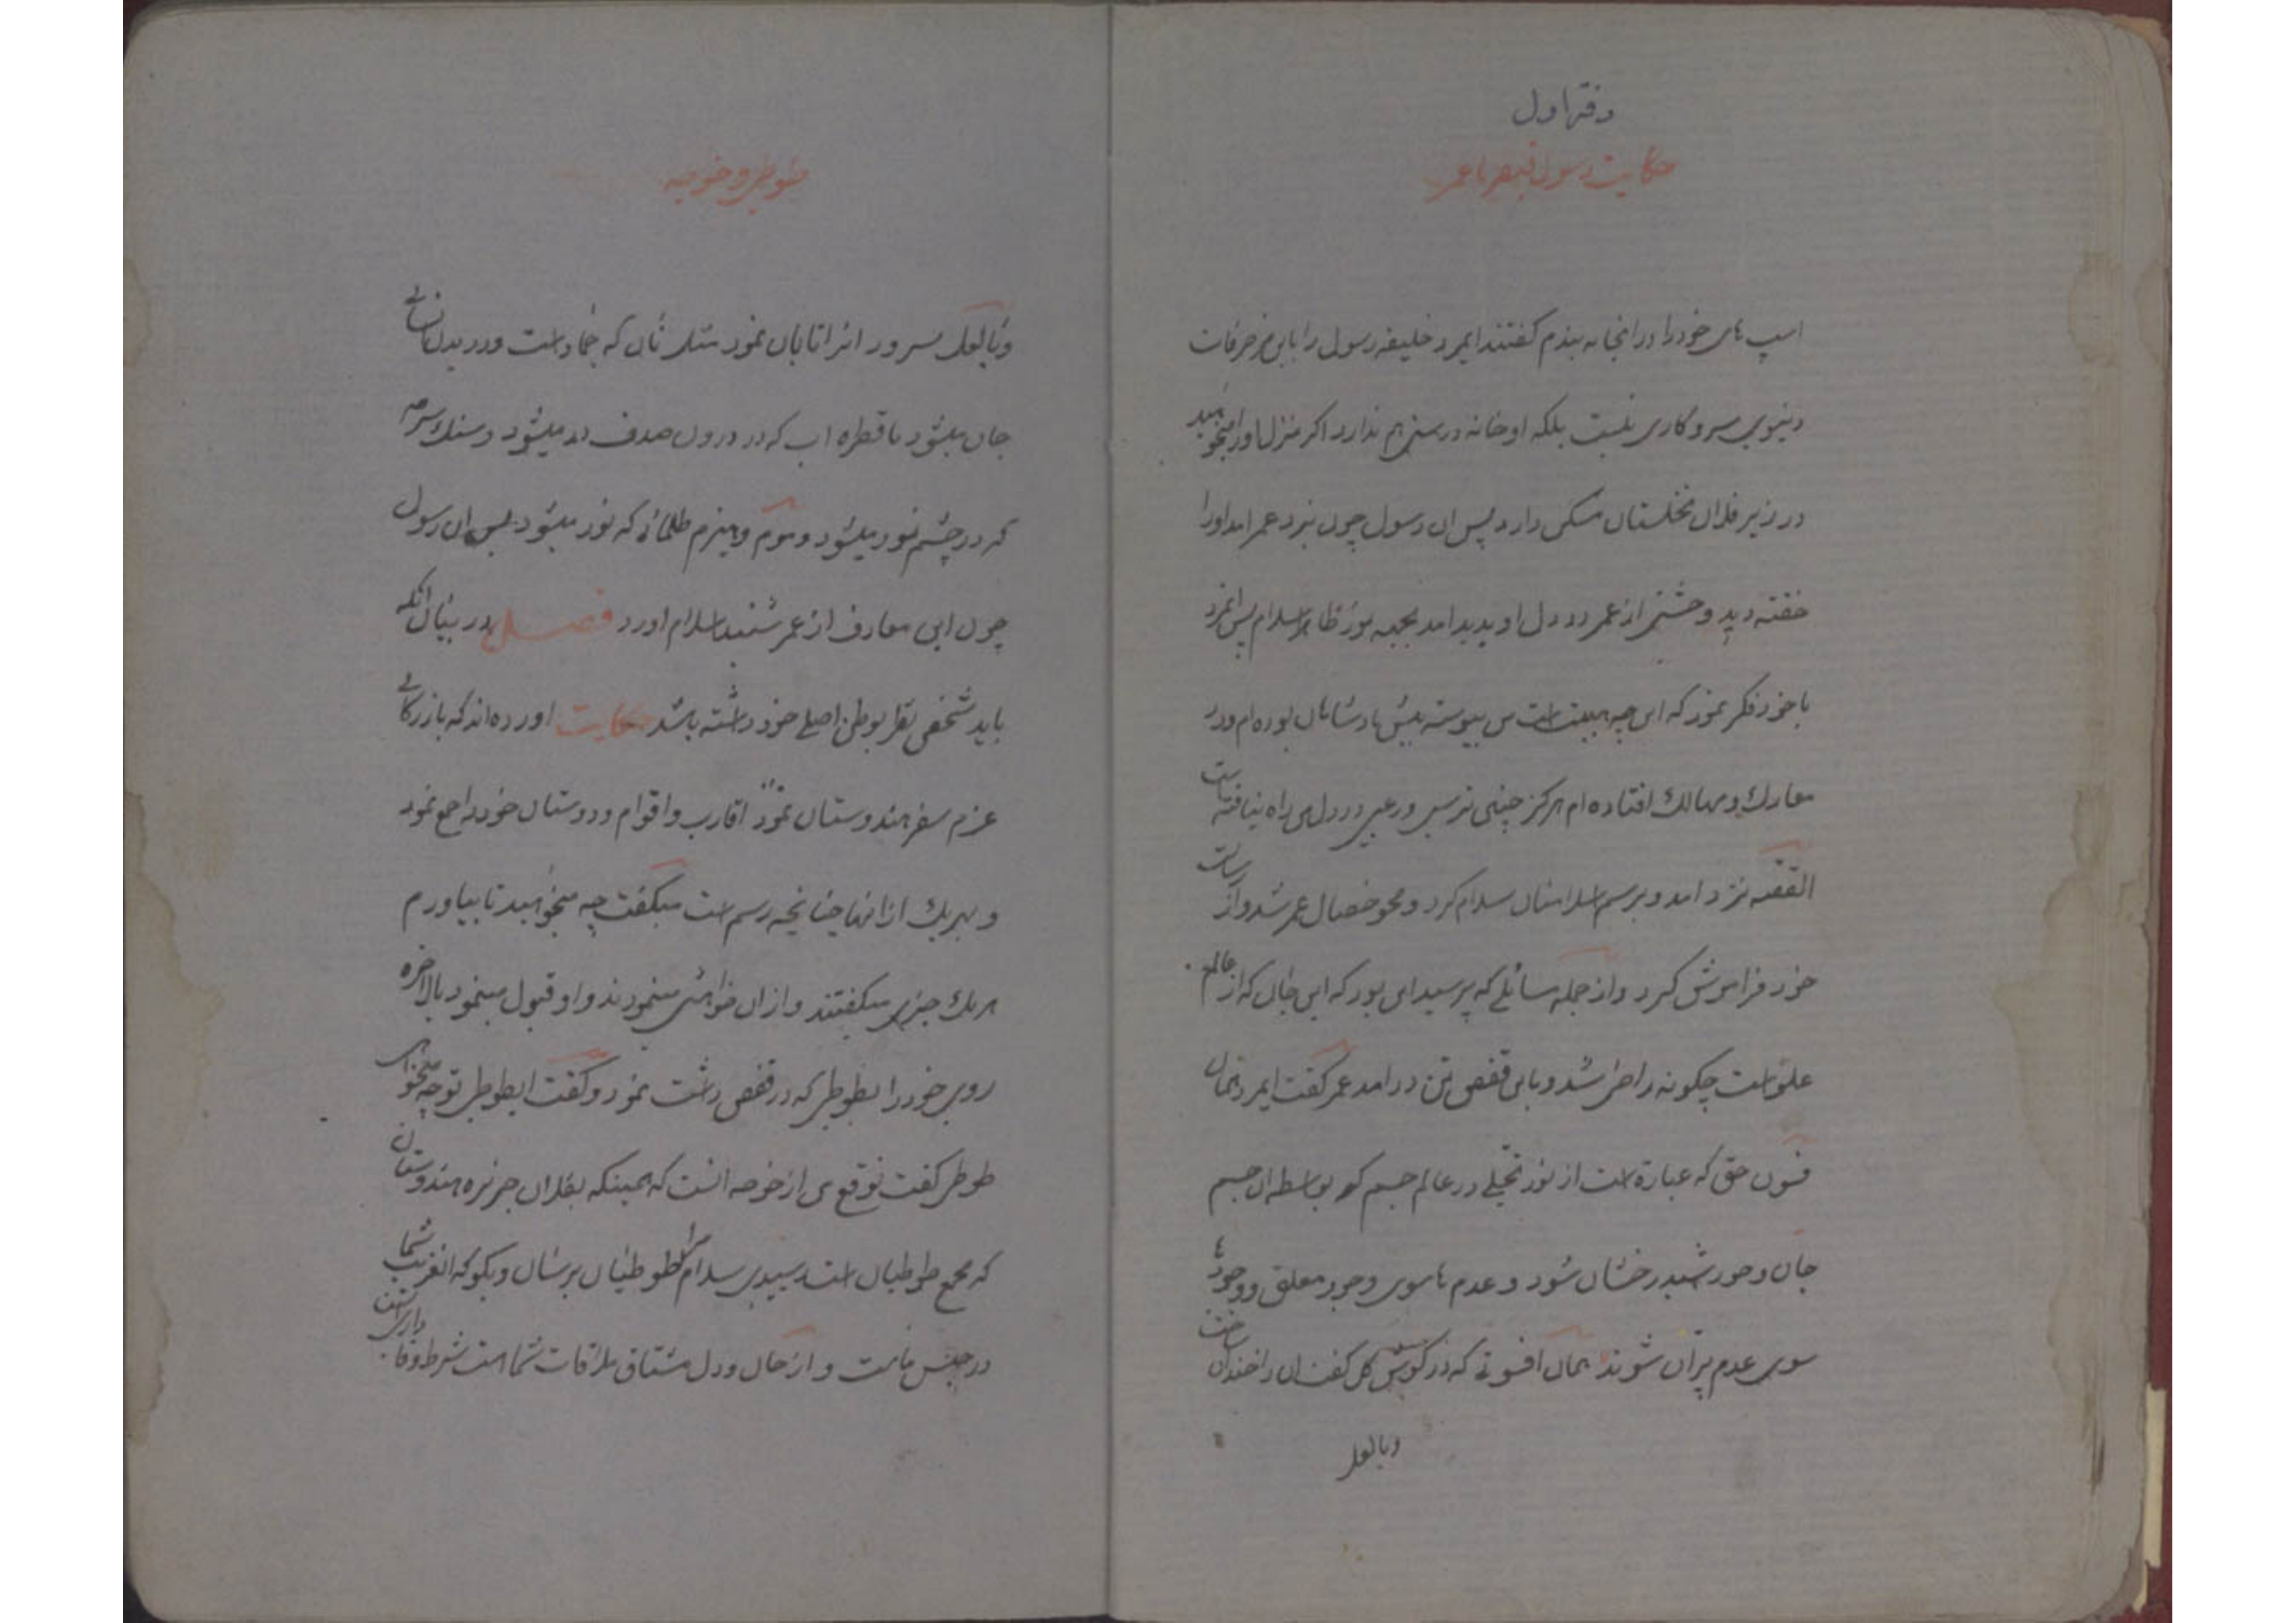 دفتر اول
حکایت رسول قیصر با عمر
اسپ های خود را در انجا به بندم گفتند ایمرد خلیفه رسول را باین مزخرفات
دنیوی سر و کاری نیست بلکه او خانه درستی هم ندارد اگر منزل او را میخواهید
در زیر فلان نخلستان مسکن دارد پس ان رسول چون نزد عمر امد او را
خفته دید وحشتی از عمر در دل او پدید امد پس انمرد
با خود فکر نمود که این چه هیبت است من پیوسته پیش پادشاهان بوده ام و در
معارك و مهالك افتاده ام هرگز چنین ترسی و رعبی در دل من راه نیافته است
القصه نزد امد و برسم اسلامیان سلام کرد و محو خصال عمر شد و از رسالت
خود فراموش کرد و از جمله مسائلی که پرسید این بود که این جان که از عالم
علو است چگونه راضی شد و باین قفص تن در امد عمر گفت ایمرد همان
فسون حق که عبارة است از نور تجلی در عالم جسم که بواسطه ان جسم
جان و خورشید رخشان شود و عدم ها سوی وجود معلق و وجودها
سوی عدم پران شوند همان افسونی که در گوش گل گفت ان را خندان ساخت
و با لعل
و با لعل سرود انرا تابان نمود مثل نان که جماد است و در بدن انسانی
جان میشود یا قطره اب که در درون صدف در میشود و سنك سرمه
که در چشم نور میشود و موم و هیزم ظلمانی که نور میشود پس ان رسول
چون این معارف از عمر شنید اسلام اورد فصل در بیان انکه
باید شخص نظر بوطن اصلی خود داشته باشد حکایت اورده اند که بازرگانی
عزم سفر هندوستان نمود اقارب و اقوام و دوستان خود را جمع نمود
و بهر یك از انها چنانچه رسم است میگفت چه میخواهید تا بیاورم
هر یك چیزی میگفتند و از ان خواهش مینمودند و او قبول مینمود بالاخره
روی خود را بطوطی که در قفص داشت نمود و گفت ایطوطی تو چه میخواهی
طوطی گفت توقع من از خوجه انست که همینکه بفلان جزیره هندوستان
که مجمع طوطیان است رسیدی سلام مرا بطوطیان برسان و بگو که انغریب شما
در حبس ماست و از جان و دل مشتاق ملاقات شما است شرط وفا